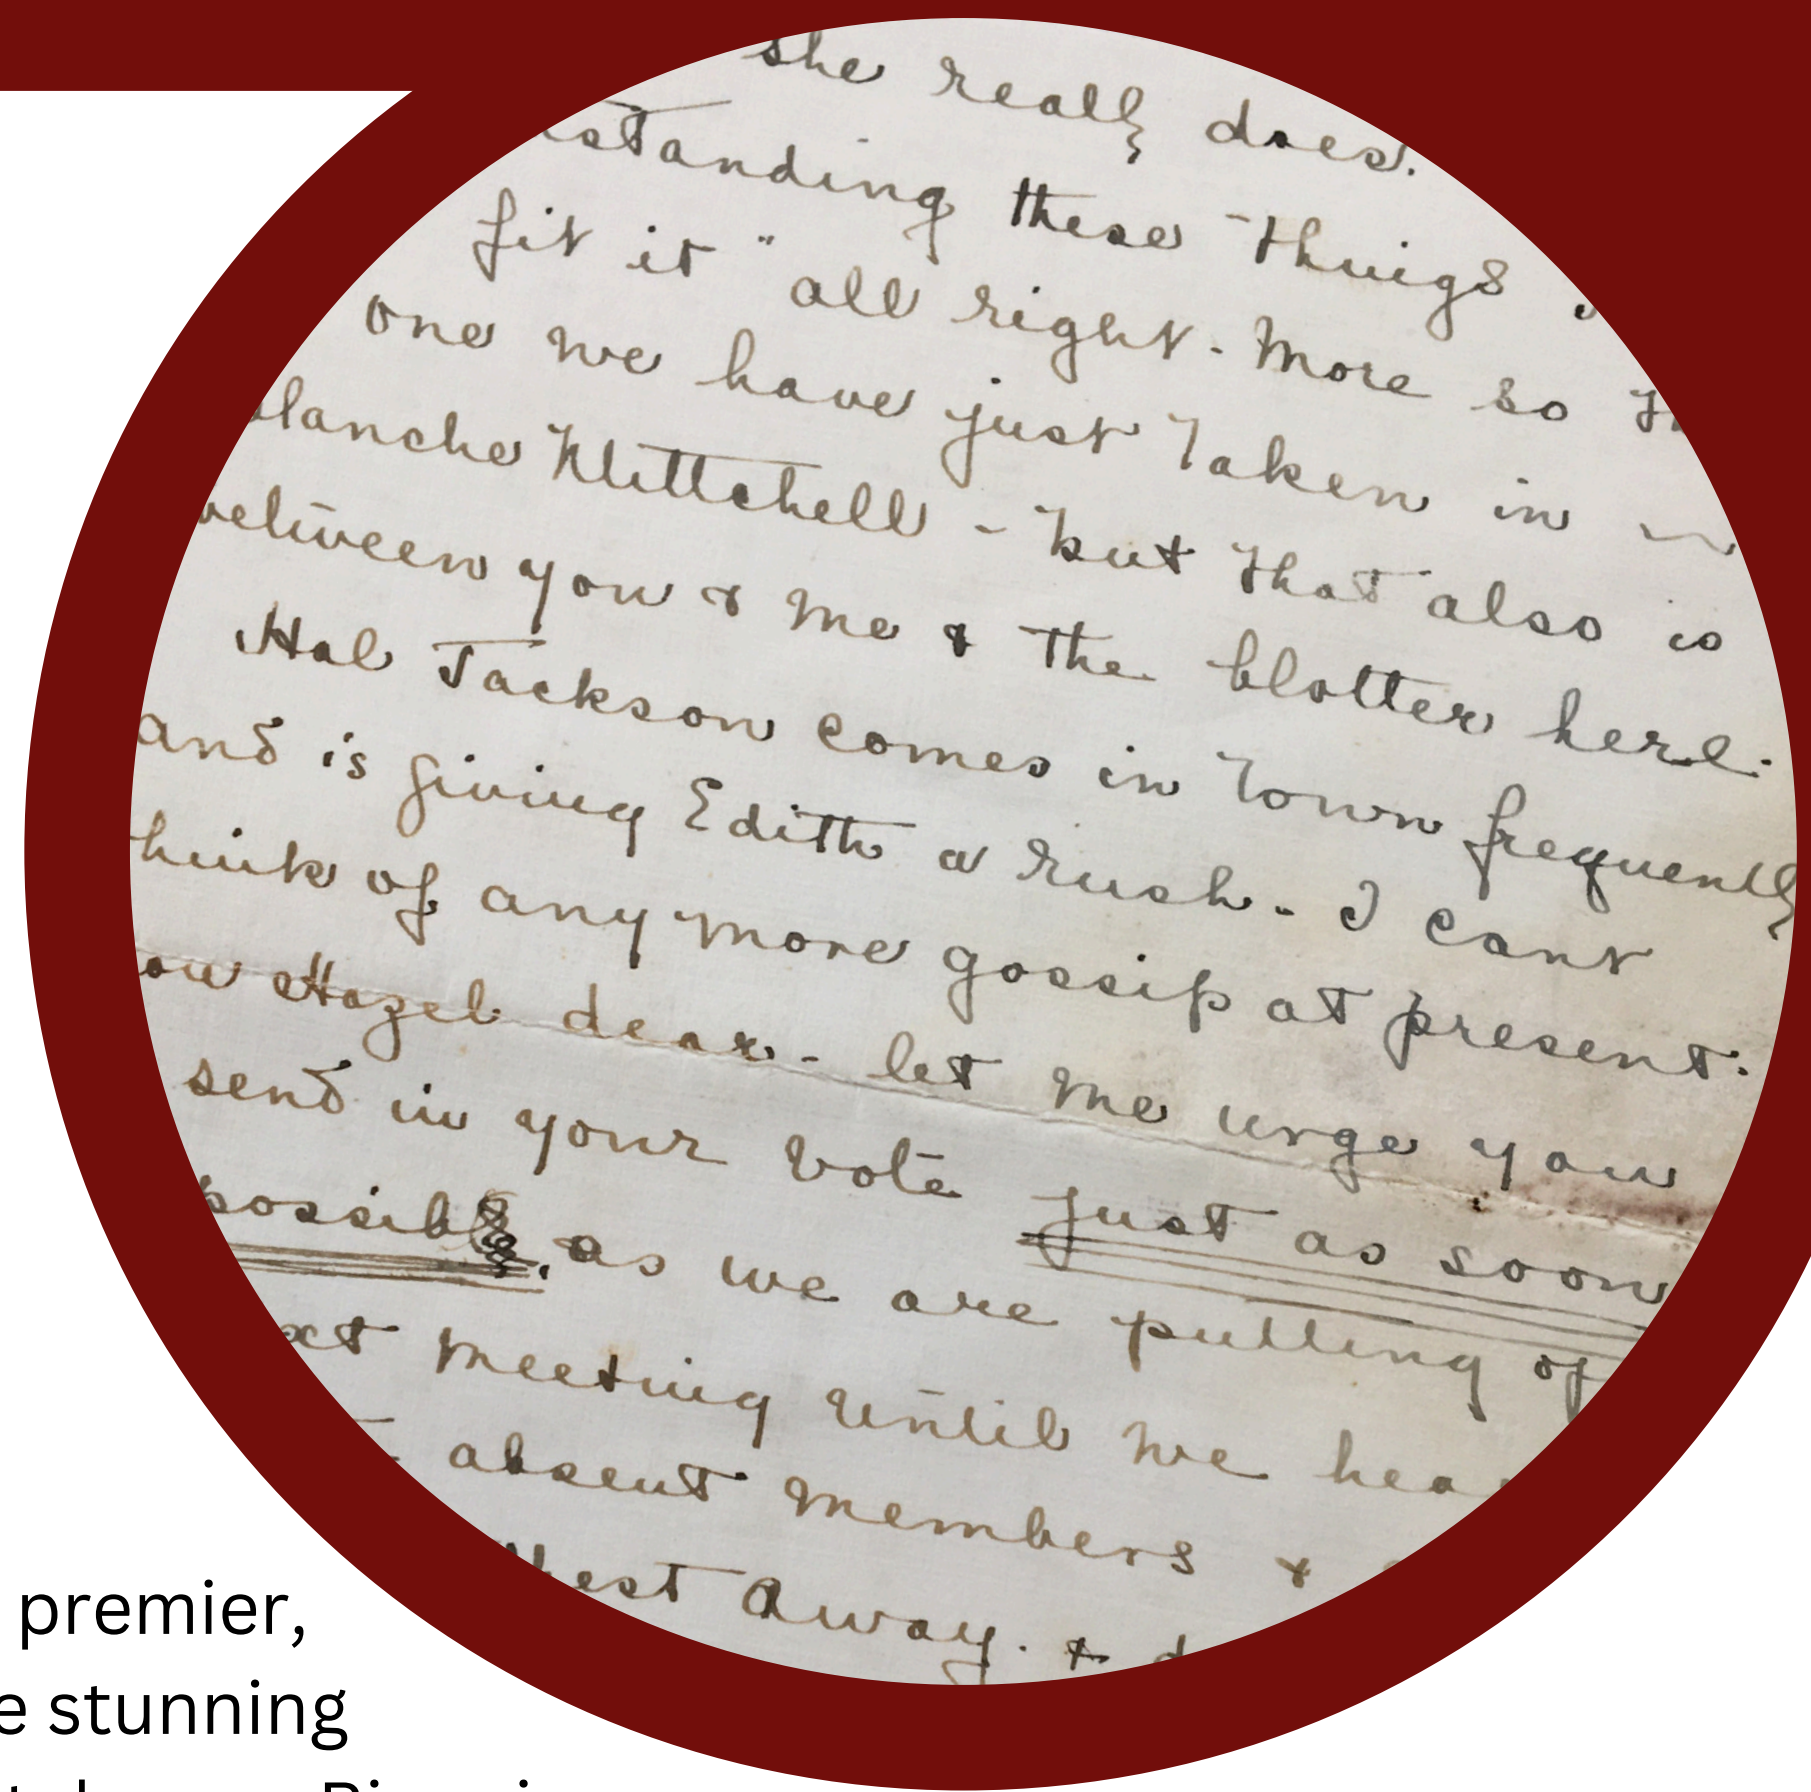 she really does.
standing these things
fit it" all right - More so
one we have just taken in
Blanche Klittchell - but that also is
between you & me & the blotter here.
Hal Jackson comes in town frequently
and is giving Edith a rush - I cant
think of any more gossip at present.
Hazel dear - let me urge you
send in your vote just as soon
possible, as we are putting of
meeting until we hea
absent members &
away. &
premier,
e stunning